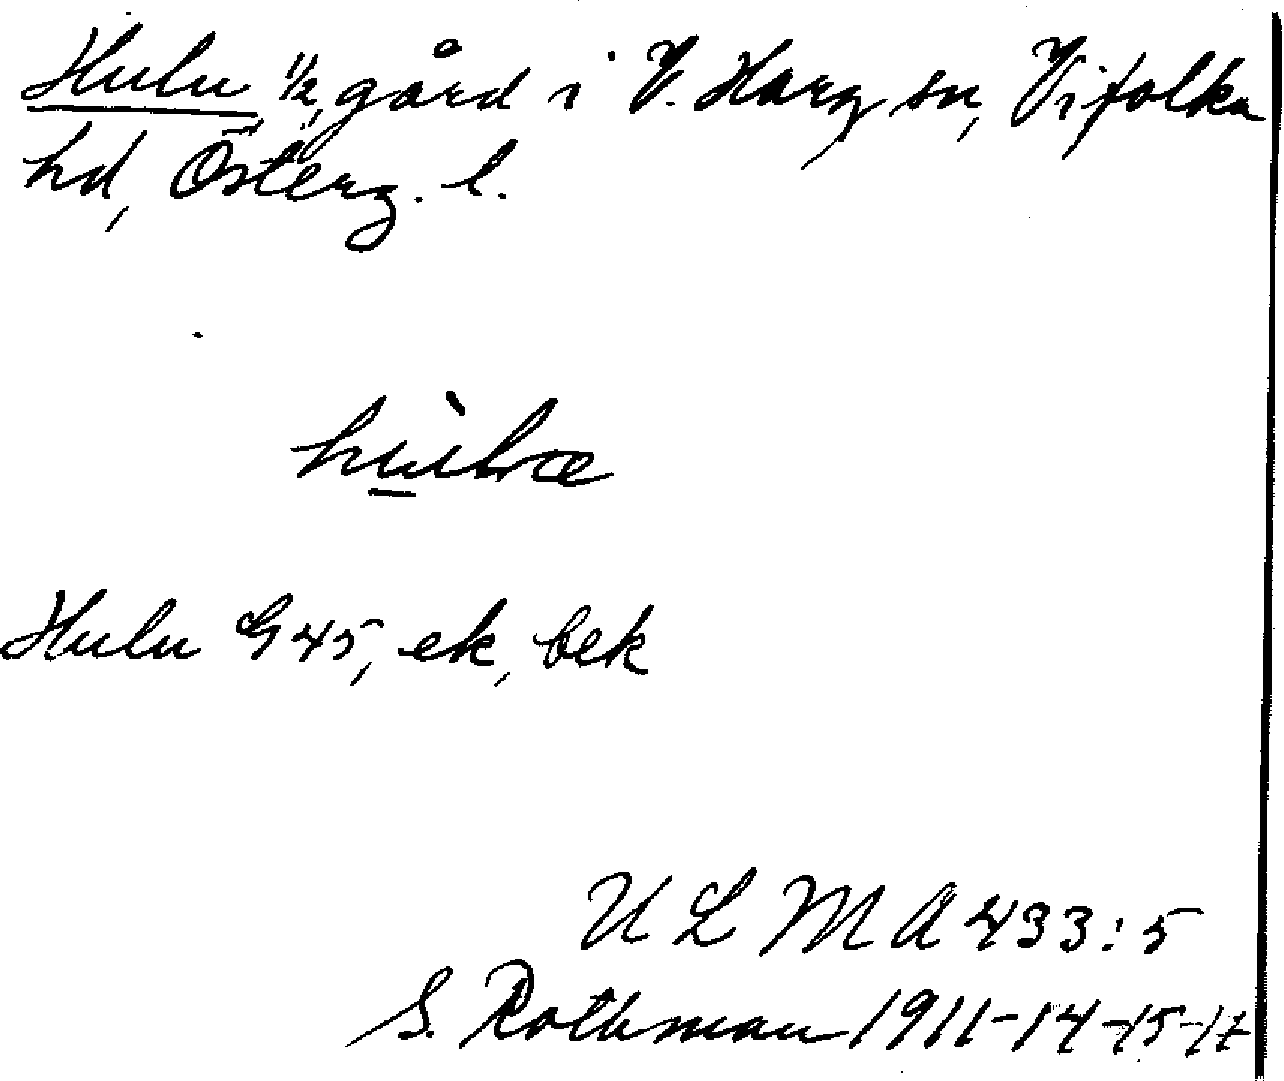 Hulu ½, gård i V. Harg sn, Vifolka
hd, Österg. l.
Hulu G45, ek, bek
ULMA 433:5
S. Rothman 1911-14-15-17